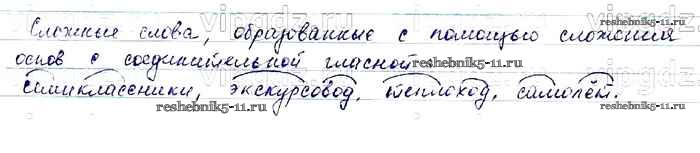 Сложные слова, образованные с помощью сложения
основ с соединительной гласной:
семиклассники, экскурсовод, теплоход, самолёт.
reshebnik5-11.ru
reshebnik5-11.ru
reshebnik5-11.ru
reshebnik5-11.ru